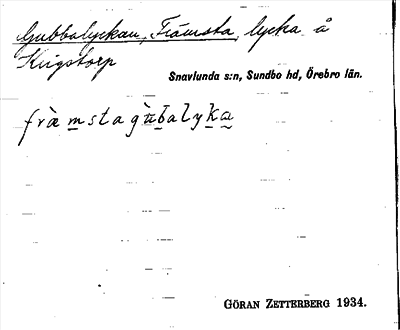 Gubbalyckan, Främsta, lycka å
Krigstorp
Snavlunda s:n, Sundbo hd, Örebro län.
fræ̀mstagùbalyka
GÖRAN ZETTERBERG 1934.